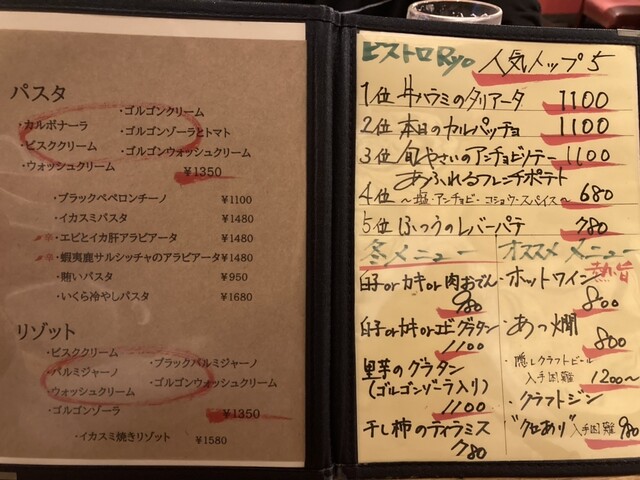 パスタ
・ゴルゴンクリーム
・カルボナーラ
・ゴルゴンゾーラとトマト
・ビスククリーム
・ゴルゴンウォッシュクリーム
・ウォッシュクリーム
¥1350
・ブラックペペロンチーノ ¥1100
・イカスミパスタ ¥1480
・エビとイカ肝アラビアータ ¥1480
・蝦夷鹿サルシッチャのアラビアータ ¥1480
・賄いパスタ ¥950
・いくら冷やしパスタ ¥1680
リゾット
・ビスククリーム
・ブラックパルミジャーノ
・パルミジャーノ
・ゴルゴンウォッシュクリーム
・ウォッシュクリーム
・ゴルゴンゾーラ
¥1350
・イカスミ焼きリゾット ¥1580
ビストロRyo 人気トップ5
1位 牛ハラミのタリアータ 1100
2位 本日のカルパッチョ 1100
3位 旬やさいのアンチョビソテー 1100
4位 あふれるフレンチポテト
〜塩・アンチョビ・コショウ・スパイス〜 680
5位 ふつうのレバーパテ 780
冬メニュー
白子orカキor肉おでん
980
白子orカキorエビグラタン
1100
里芋のグラタン
(ゴルゴンゾーラ入り)
1100
干し柿のティラミス
780
オススメメニュー
・ホットワイン 熱旨
800
・あつ燗
800
・隠しクラフトビール
入手困難 1200〜
・クラフトジン
"クロあり" 入手困難 980